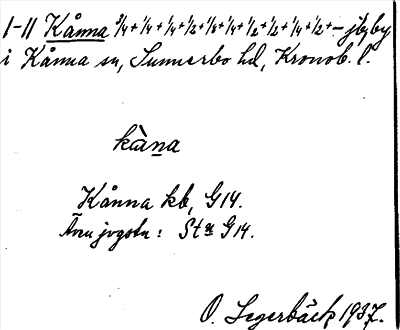 1-11 Kånna 3/4+1/4+1/4+1/2+1/4+1/4+1/2+1/2+1/4+1/2+- jby, by
i Kånna sn, Sunnerbo hd, Kronob. l.
kàna
Kånna kb, G14.
Även jvgstn: Stn G14.
O. Segerbäck 1937.